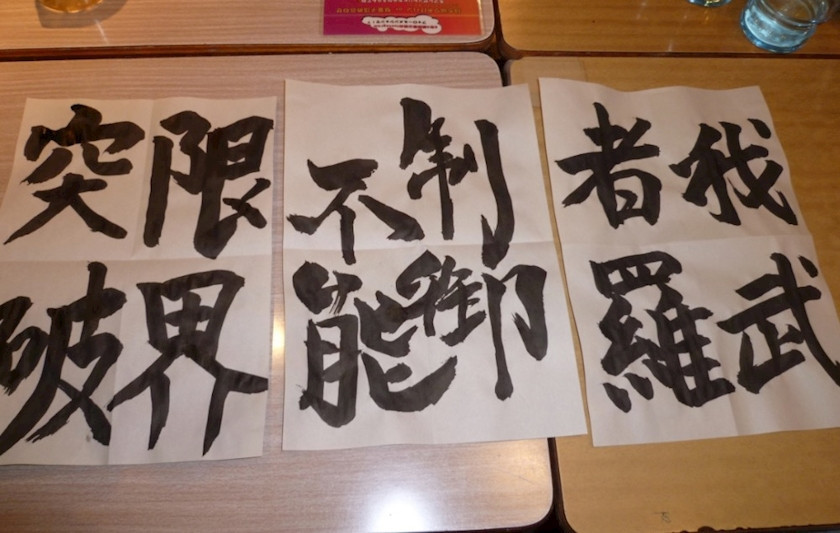 我武
者羅
制御
不能
限界
突破